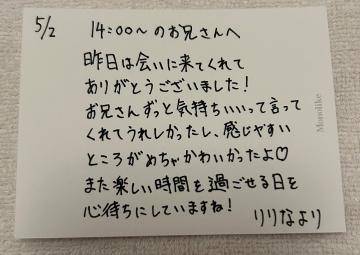 5/2 14:00〜のお兄さんへ
昨日は会いに来てくれて
ありがとうございました！
お兄さんずっと気持ちいいって言って
くれてうれしかったし、感じやすい
ところがめちゃかわいかったよ♡
また楽しい時間を過ごせる日を
心待ちにしていますね！
りりなより
Monolike